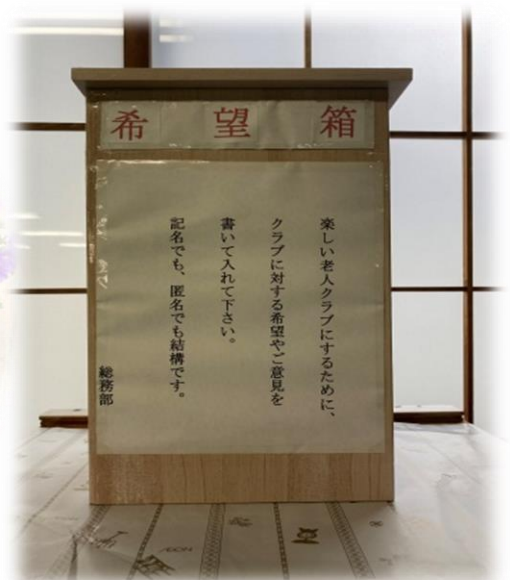 希望箱
楽しい老人クラブにするために、
クラブに対する希望やご意見を
書いて入れて下さい。
記名でも、匿名でも結構です。
総務部
AEON